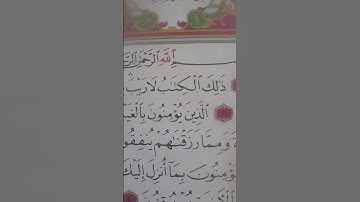 ٱللَّهِ ٱلرَّحْمَٰنِ
ذَٰلِكَ ٱلْكِتَٰبُ لَا رَيْبَ
ٱلَّذِينَ يُؤْمِنُونَ بِٱلْغَيْ
وَمِمَّا رَزَقْنَٰهُمْ يُنفِقُو
يُؤْمِنُونَ بِمَآ أُنزِلَ إِلَيْكَ